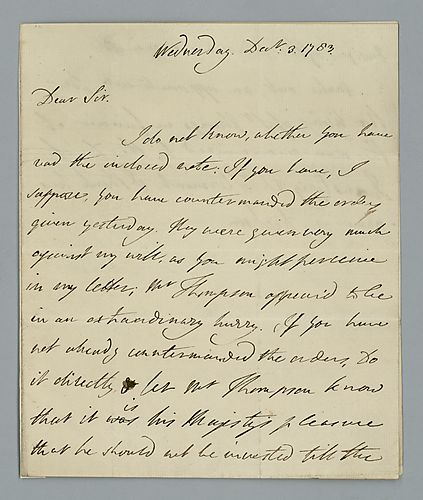 Wednesday. Decr. 3. 1783.
Dear Sir.
I do not know, whether you have
read the inclosed note: If you have, I
suppose, you have countermanded the orders
given yesterday. They were given very much
against my will, as you might perceive
in my letter; Mr Thompson appear'd to be
in an extraordinary hurry. If you have
not already countermanded the orders, do
it directly, & let Mr Thompson know
that it is his Majesty's pleasure
that he should not be invested till the